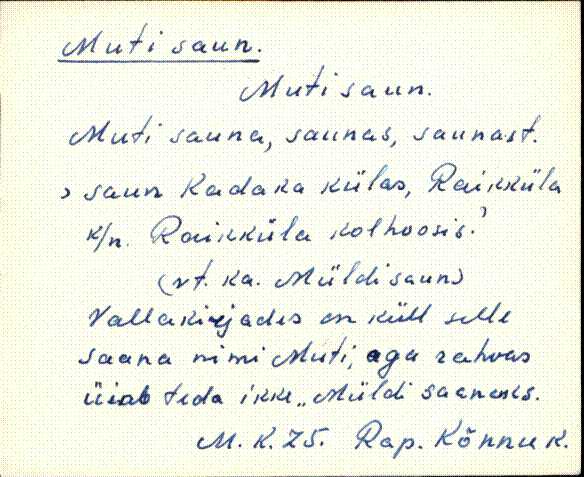 Muti saun.
Muti saun.
Muti sauna, saunas, saunast.
> saun Kadaka külas, Raikküla
k/n. Raikküla kolhoosis.
(vt. ka. Müldi saun)
Vallakirjades on küll selle
saana nimi Muti, aga rahvas
üiab teda ikke „Müldi saanaks.
M. K. 75. Rap. Kõnnu k.